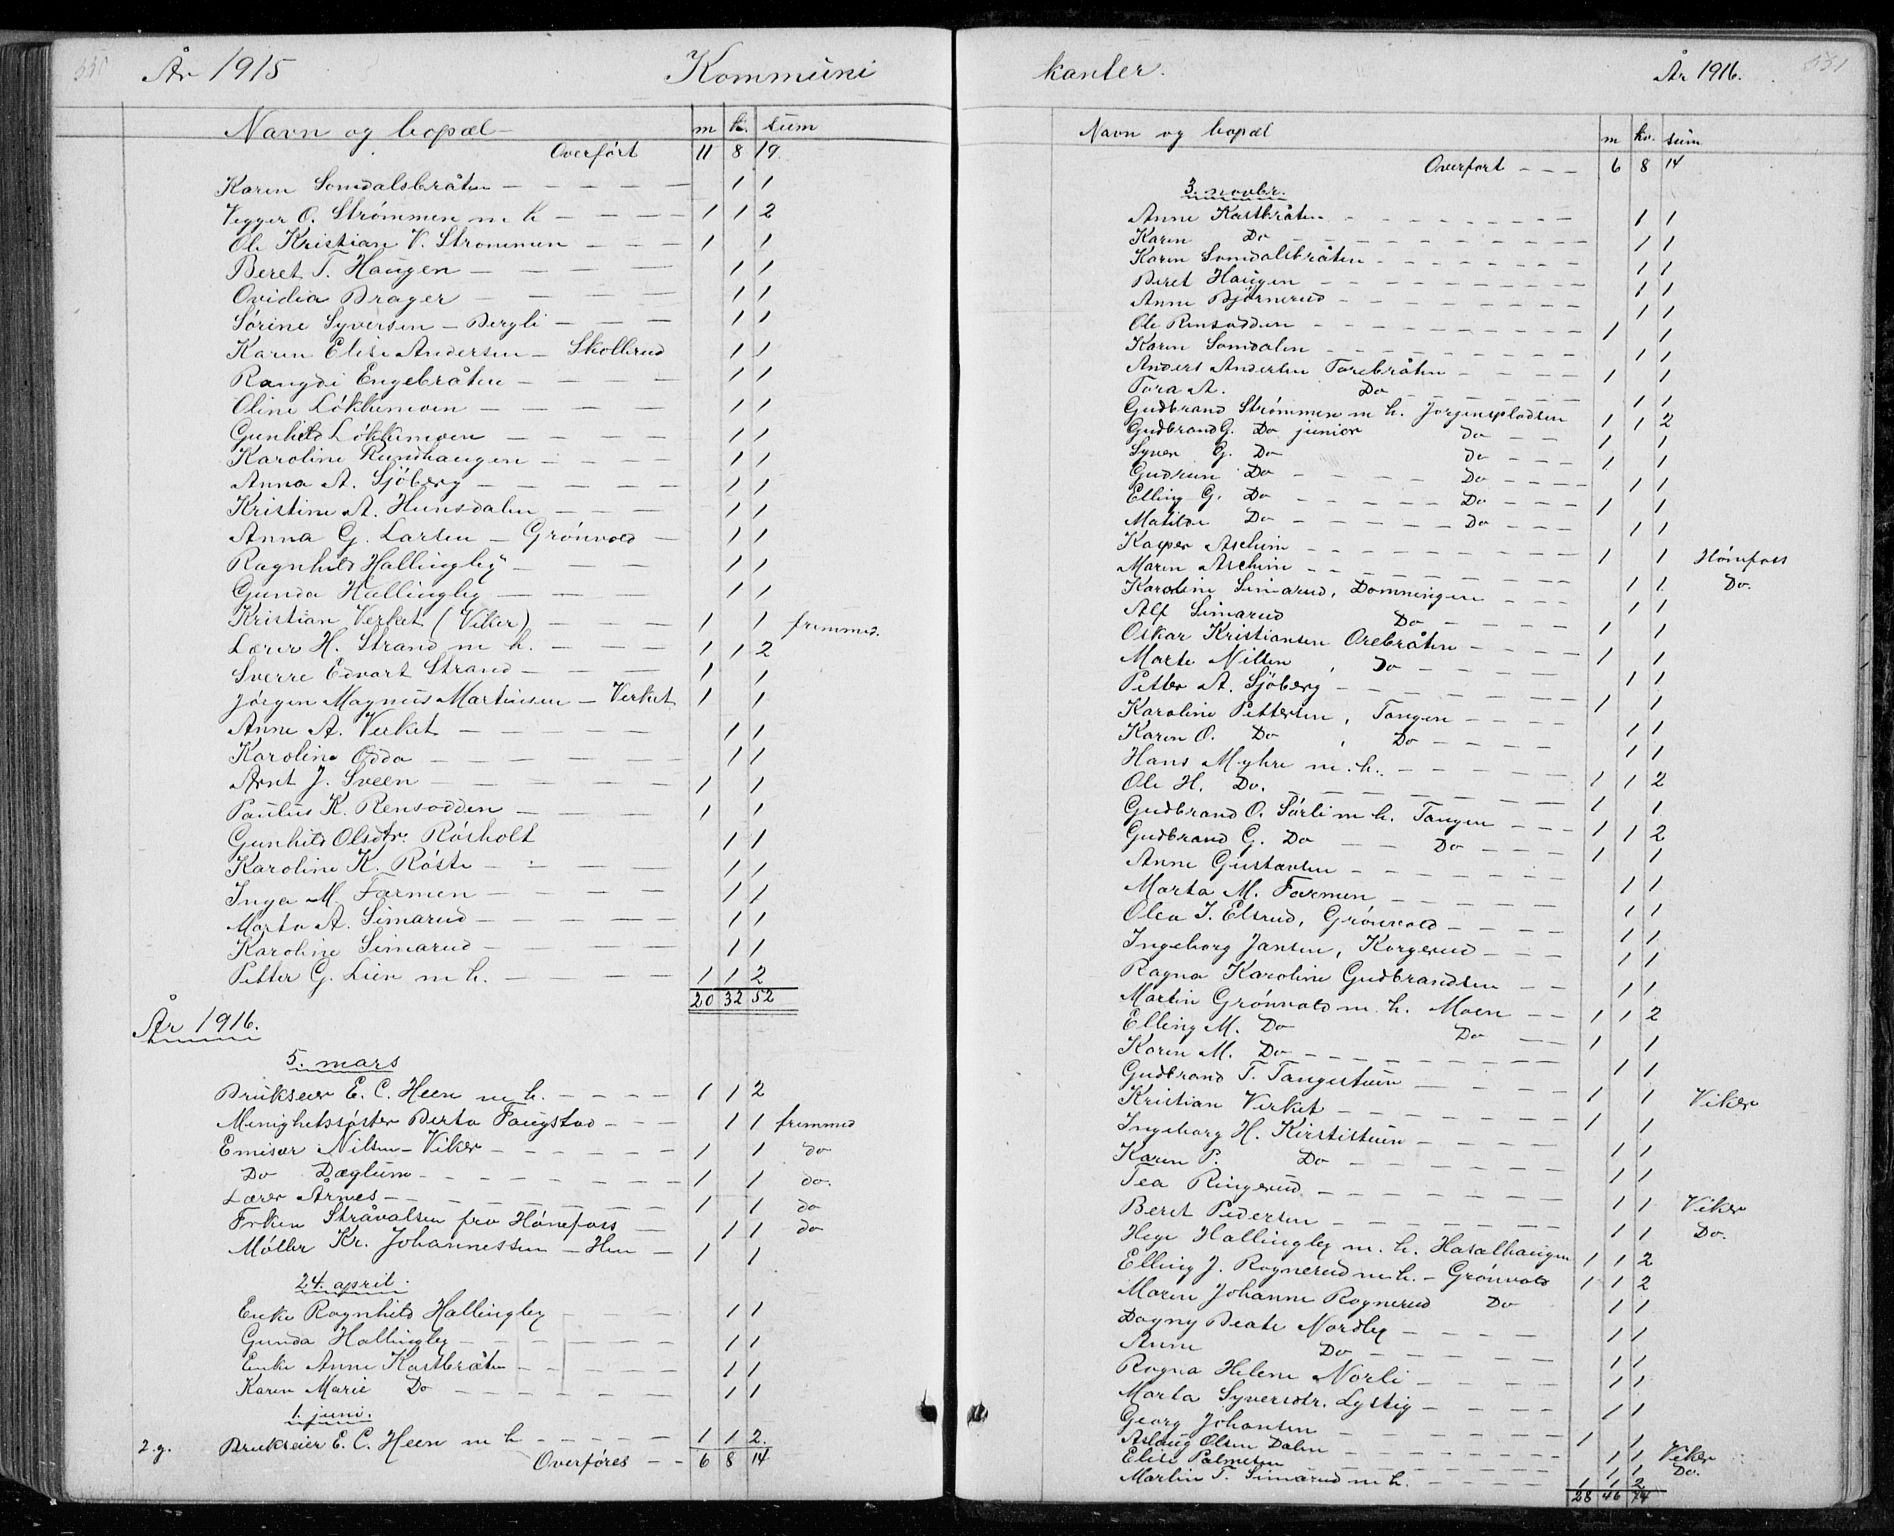 550
År 1915
Kommuni
Navn og bopæl m k. sum
Overført 11 8 19
Karen Somdalsbråten 1 1
Vegger O. Strømmen m h 1 1 2
Ole Kristian V. Strømmen 1 1
Beret T. Haugen 1 1
Ovidia Brager 1 1
Sørine Syversen – Bergli 1 1
Karen Elise Andersen – Skollerud 1 1
Rangdi Engebråten 1 1
Oline Løkkemoen 1 1
Gunhild Løkkemoen 1 1
Karoline Rundhaugen 1 1
Anna A. Sjöberg 1 1
Kristine A. Hunsdalen 1 1
Anna G. Larsen – Grønvold 1 1
Ragnhild Hallingby 1 1
Gunda Hallingby 1 1
Kristian Verket (Viker) 1 1 fremmed.
Lærer H. Strand m h. 1 1 2
Sverre Edvart Strand 1 1
Jørgen Magnus Martinsen – Verket 1 1
Anne A. Verket 1 1
Karoline Odda 1 1
Arnt J. Sveen 1 1
Paulus K. Rensodden 1 1
Gunhild Olsdtr. Røsholt 1 1
Karoline K. Røste 1 1
Inga M. Farmen 1 1
Marta A. Simarud 1 1
Karoline Simarud 1 1
Petter G. Lien m h. 1 1 2
20 32 52
År 1916.
5. mars
Brukseier E. C. Heen m h. 1 1 2
Menighetssøster Berta Faugstad 1 1 fremmed
Emisær Nilsen – Viker 1 1 do
Do Dæglum 1 1 do.
Lærer Årnes 1 1 do
Frken Stråvalsen fra Hønefoss 1 1 do
Møller Kr. Johannessen – Hen 1 1
24. april.
Enke Ragnhild Hallingby 1 1
Gunda Hallingby 1 1
Enke Anne Kastbråten 1 1
Karen Marie Do 1 1
1. juni.
2.g. Brukseier E. C. Heen m h 1 1 2.
Overføres 6 8 14
kanter.
År 1916.
551
Navn og bopæl m kv. sum
Overført 6 8 14
3. novbr.
Anne Kastbråten 1 1
Karen Do 1 1
Karen Somdalsbråten 1 1
Beret Haugen 1 1
Anne Bjørnerud 1 1
Ole Rensodden 1 1
Karen Somdalen 1 1
Anders Andersen Torebråten 1 1
Tora A. Do 1 1
Gudbrand Strømmen m h. Jørgenspladsen 1 1 2
Gudbrand G. Do junior do 1 1
Syver G. Do do 1 1
Gudrun Do Do 1 1
Elling G. Do Do 1 1
Matilde Do Do 1 1
Kasper Aschim 1 1 Hønefoss
Maren Aschim 1 1 Do.
Karoline Simarud, Domningen 1 1
Alf Simarud Do 1 1
Oskar Kristiansen Orebråten 1 1
Marte Nilsen, Do 1 1
Petter A. Sjöberg 1 1
Karoline Pettersen, Tangen 1 1
Karen O. Do, Do 1 1
Hans Myhre m. h. 1 1 2
Ole H. Do. 1 1
Gudbrand O. Sørli m h. Tangen 1 1 2
Gudbrand G. Do Do 1 1
Anne Gustavsen 1 1
Marta M. Farmen 1 1
Olea J. Elsrud, Grønvold 1 1
Ingeborg Jansen, Korgerud 1 1
Ragna Karoline Gudbrandsen 1 1
Martin Grønvold m. h. Moen 1 1 2
Elling M. Do Do 1 1
Karen M. Do 1 1
Gudbrand T. Tangestuen 1 1
Kristian Verket 1 1 Viker
Ingeborg H. Kirstistuen 1 1
Karen P. Do 1 1
Tea Ringerud 1 1 Viker
Beret Pedersen 1 1 Do.
Hege Hallingby m. h. Hasalhaugen 1 1 2
Elling J. Rognerud m h. – Grønvold 1 1 2
Maren Johanne Rognerud Do 1 1
Dagny Beate Nordby 1 1
Anne Do 1 1
Ragna Helene Norli 1 1
Marta Syversdtr. Lystig 1 1
Georg Johansen 1 1
Aslaug Olsen Dalen 1 1 Viker
Elise Palmesen 1 1 Do.
Martin T. Simarud m h. 1 1 2
28 46 74